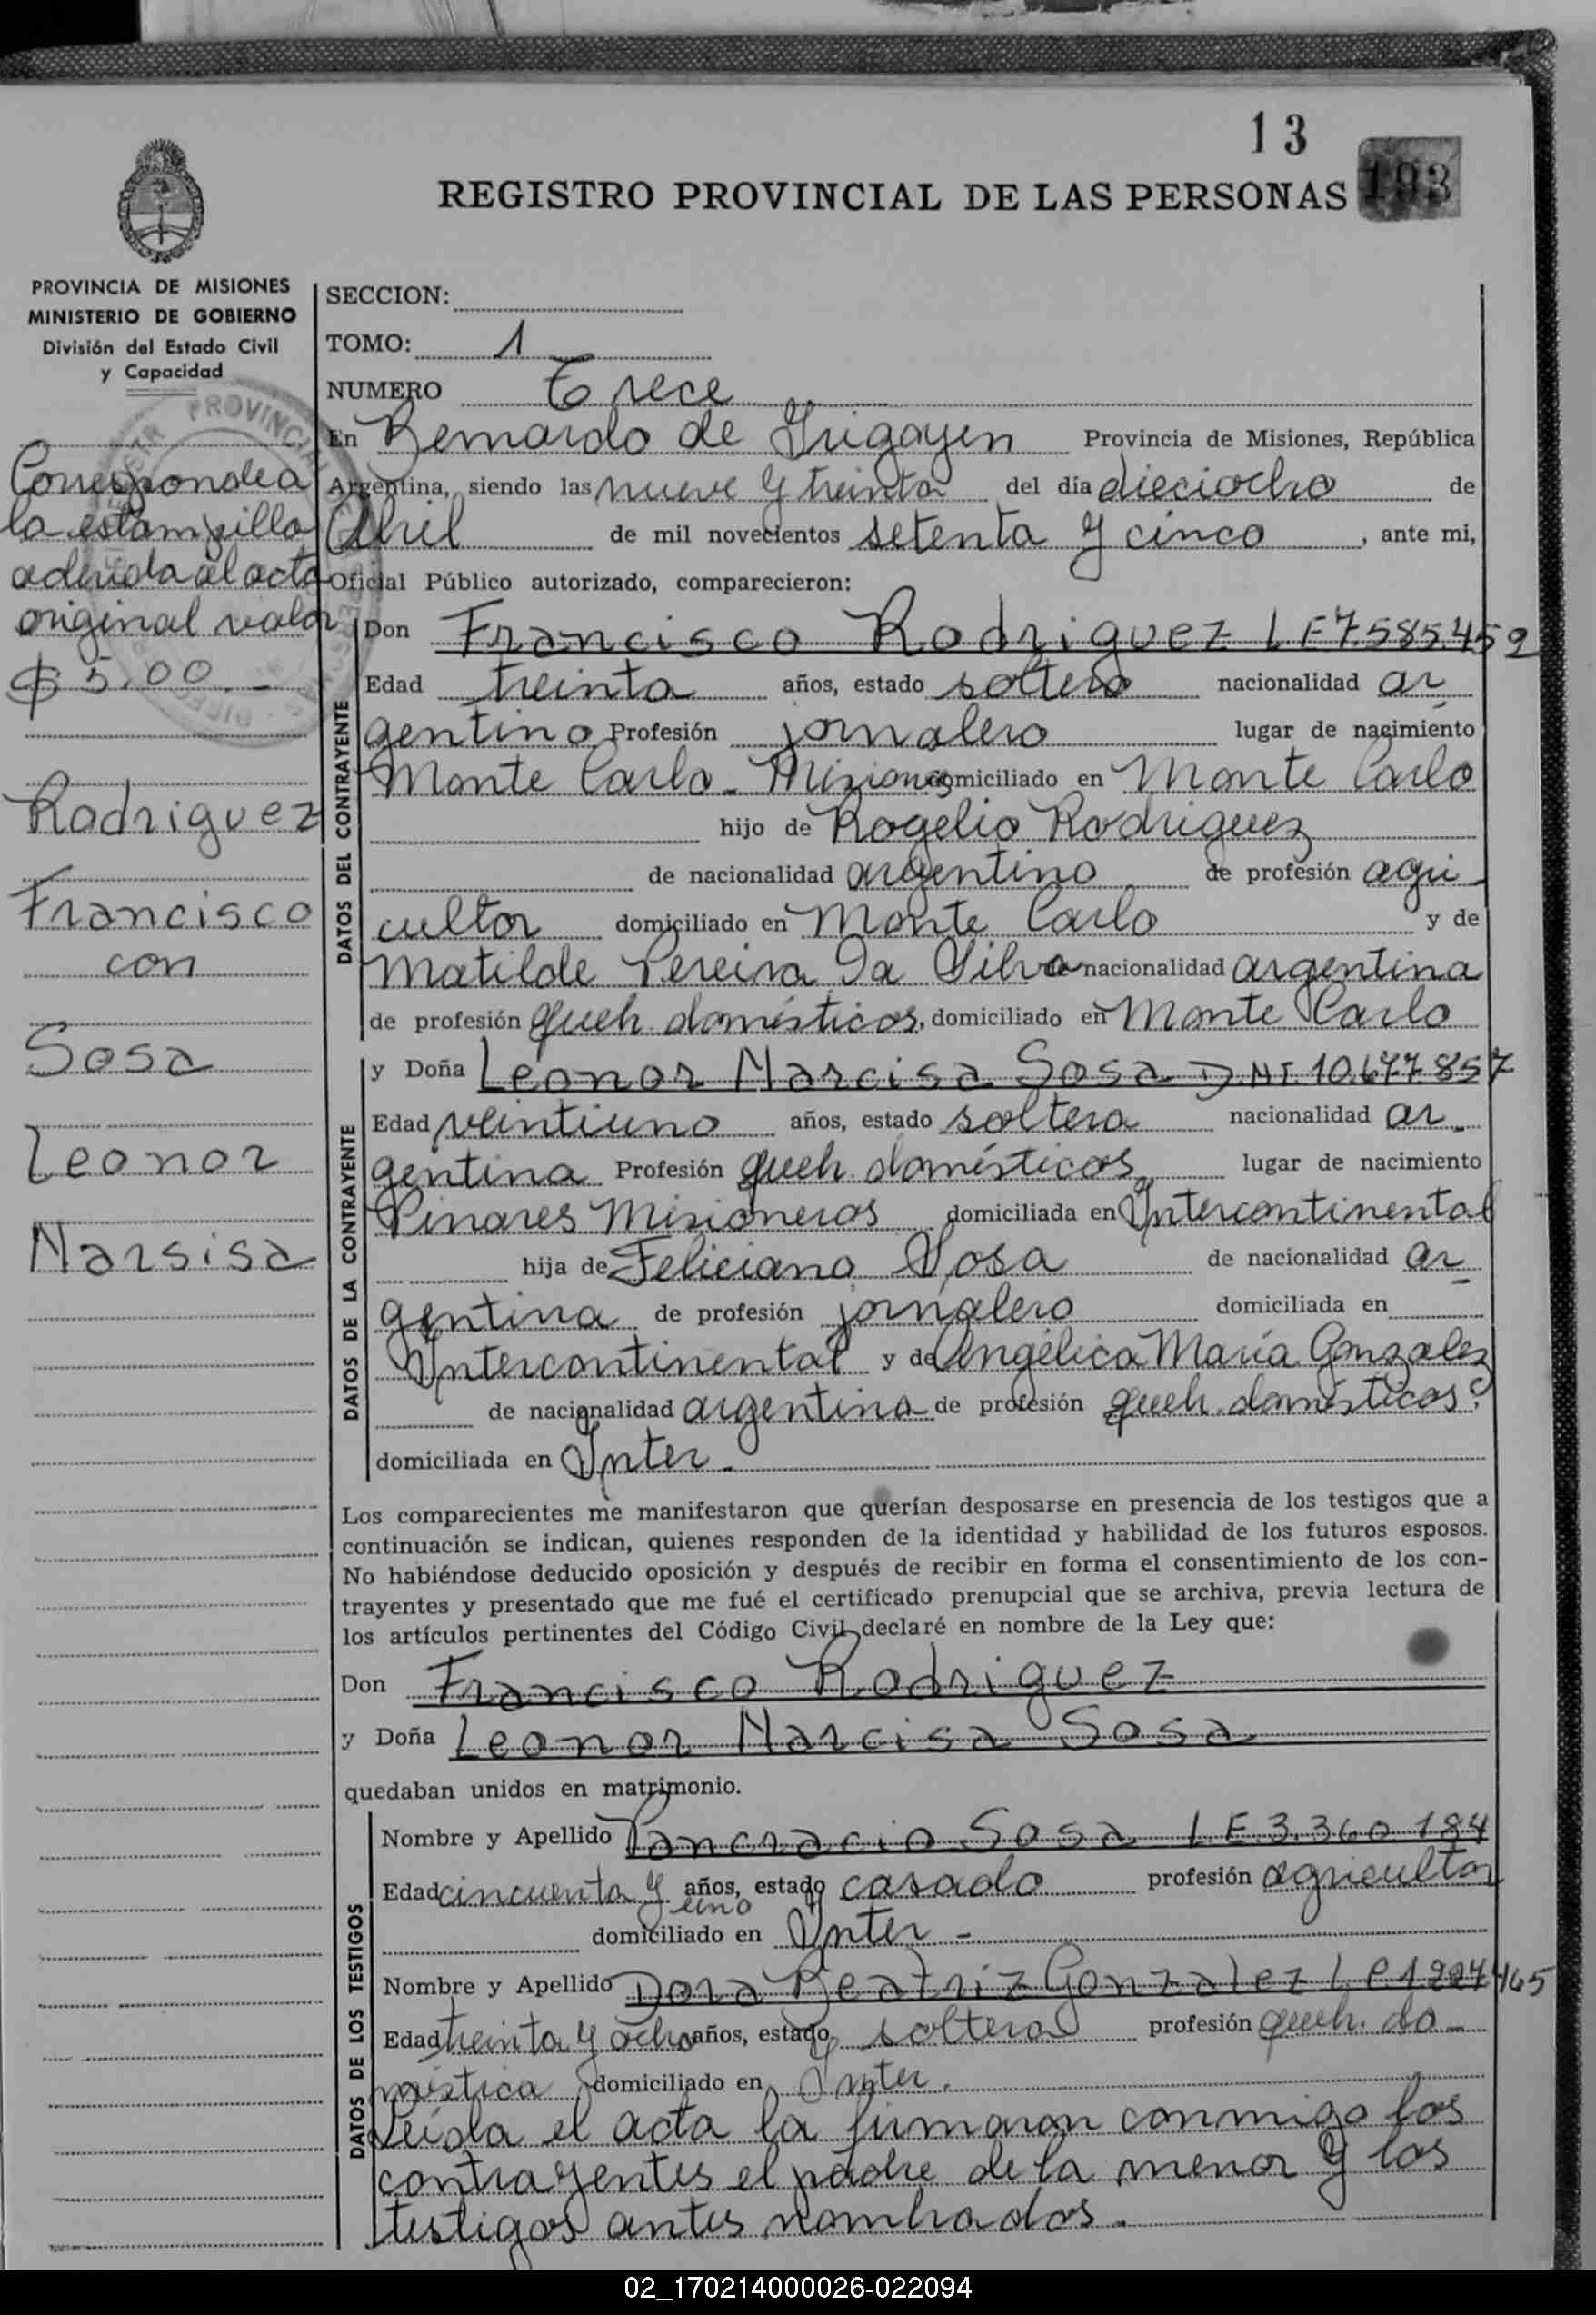 13
REGISTRO PROVINCIAL DE LAS PERSONAS 193
PROVINCIA DE MISIONES
MINISTERIO DE GOBIERNO
División del Estado Civil
y Capacidad
Corresponde a
la estampilla
aderida al acta
original valor
$ 5.00.-
Rodriguez
Francisco
con
Sosa
Leonor
Narsisa
SECCION:
TOMO: 1
NUMERO Trece
En Bernardo de Irigoyen Provincia de Misiones, República
Argentina, siendo las nueve y treinta del día dieciocho de
Abril de mil novecientos setenta y cinco, ante mi,
Oficial Público autorizado, comparecieron:
DATOS DEL CONTRAYENTE
Don Francisco Rodriguez L E 7.585.452
Edad treinta años, estado soltero nacionalidad ar
gentino Profesión jornalero lugar de nacimiento
Monte Carlo - Misiones domiciliado en Monte Carlo
hijo de Rogelio Rodriguez
de nacionalidad argentino de profesión agri-
cultor domiciliado en Monte Carlo y de
Matilde Pereira Da Silva de nacionalidad argentina
de profesión queh. domésticos, domiciliado en Monte Carlo
DATOS DE LA CONTRAYENTE
y Doña Leonor Narcisa Sosa D.N.I. 10.677.857
Edad veintiuno años, estado soltera nacionalidad ar-
gentina Profesión queh. domésticos lugar de nacimiento
Pinares Misioneros domiciliada en Intercontinental
hija de Feliciano Sosa de nacionalidad ar
gentina de profesión jornalero domiciliada en
Intercontinental y de Angélica María Gonzalez
de nacionalidad argentina de profesión queh. domésticos
domiciliada en Inter.
Los comparecientes me manifestaron que querían desposarse en presencia de los testigos que a
continuación se indican, quienes responden de la identidad y habilidad de los futuros esposos.
No habiéndose deducido oposición y después de recibir en forma el consentimiento de los con-
trayentes y presentado que me fué el certificado prenupcial que se archiva, previa lectura de
los artículos pertinentes del Código Civil declaré en nombre de la Ley que:
Don Francisco Rodriguez
y Doña Leonor Narcisa Sosa
quedaban unidos en matrimonio.
DATOS DE LOS TESTIGOS
Nombre y Apellido Pancracio Sosa L.E. 3.360.184
Edad cincuenta y uno años, estado casado profesión agricultor
domiciliado en Inter -
Nombre y Apellido Dora Beatriz Gonzalez
Edad treinta y ocho años, estado soltera profesión queh. do-
méstica domiciliado en Inter.
Leida el acta la firmaron conmigo los
contrayentes el padre de la menor y los
testigos antes nombrados.
02_170214000026-022094